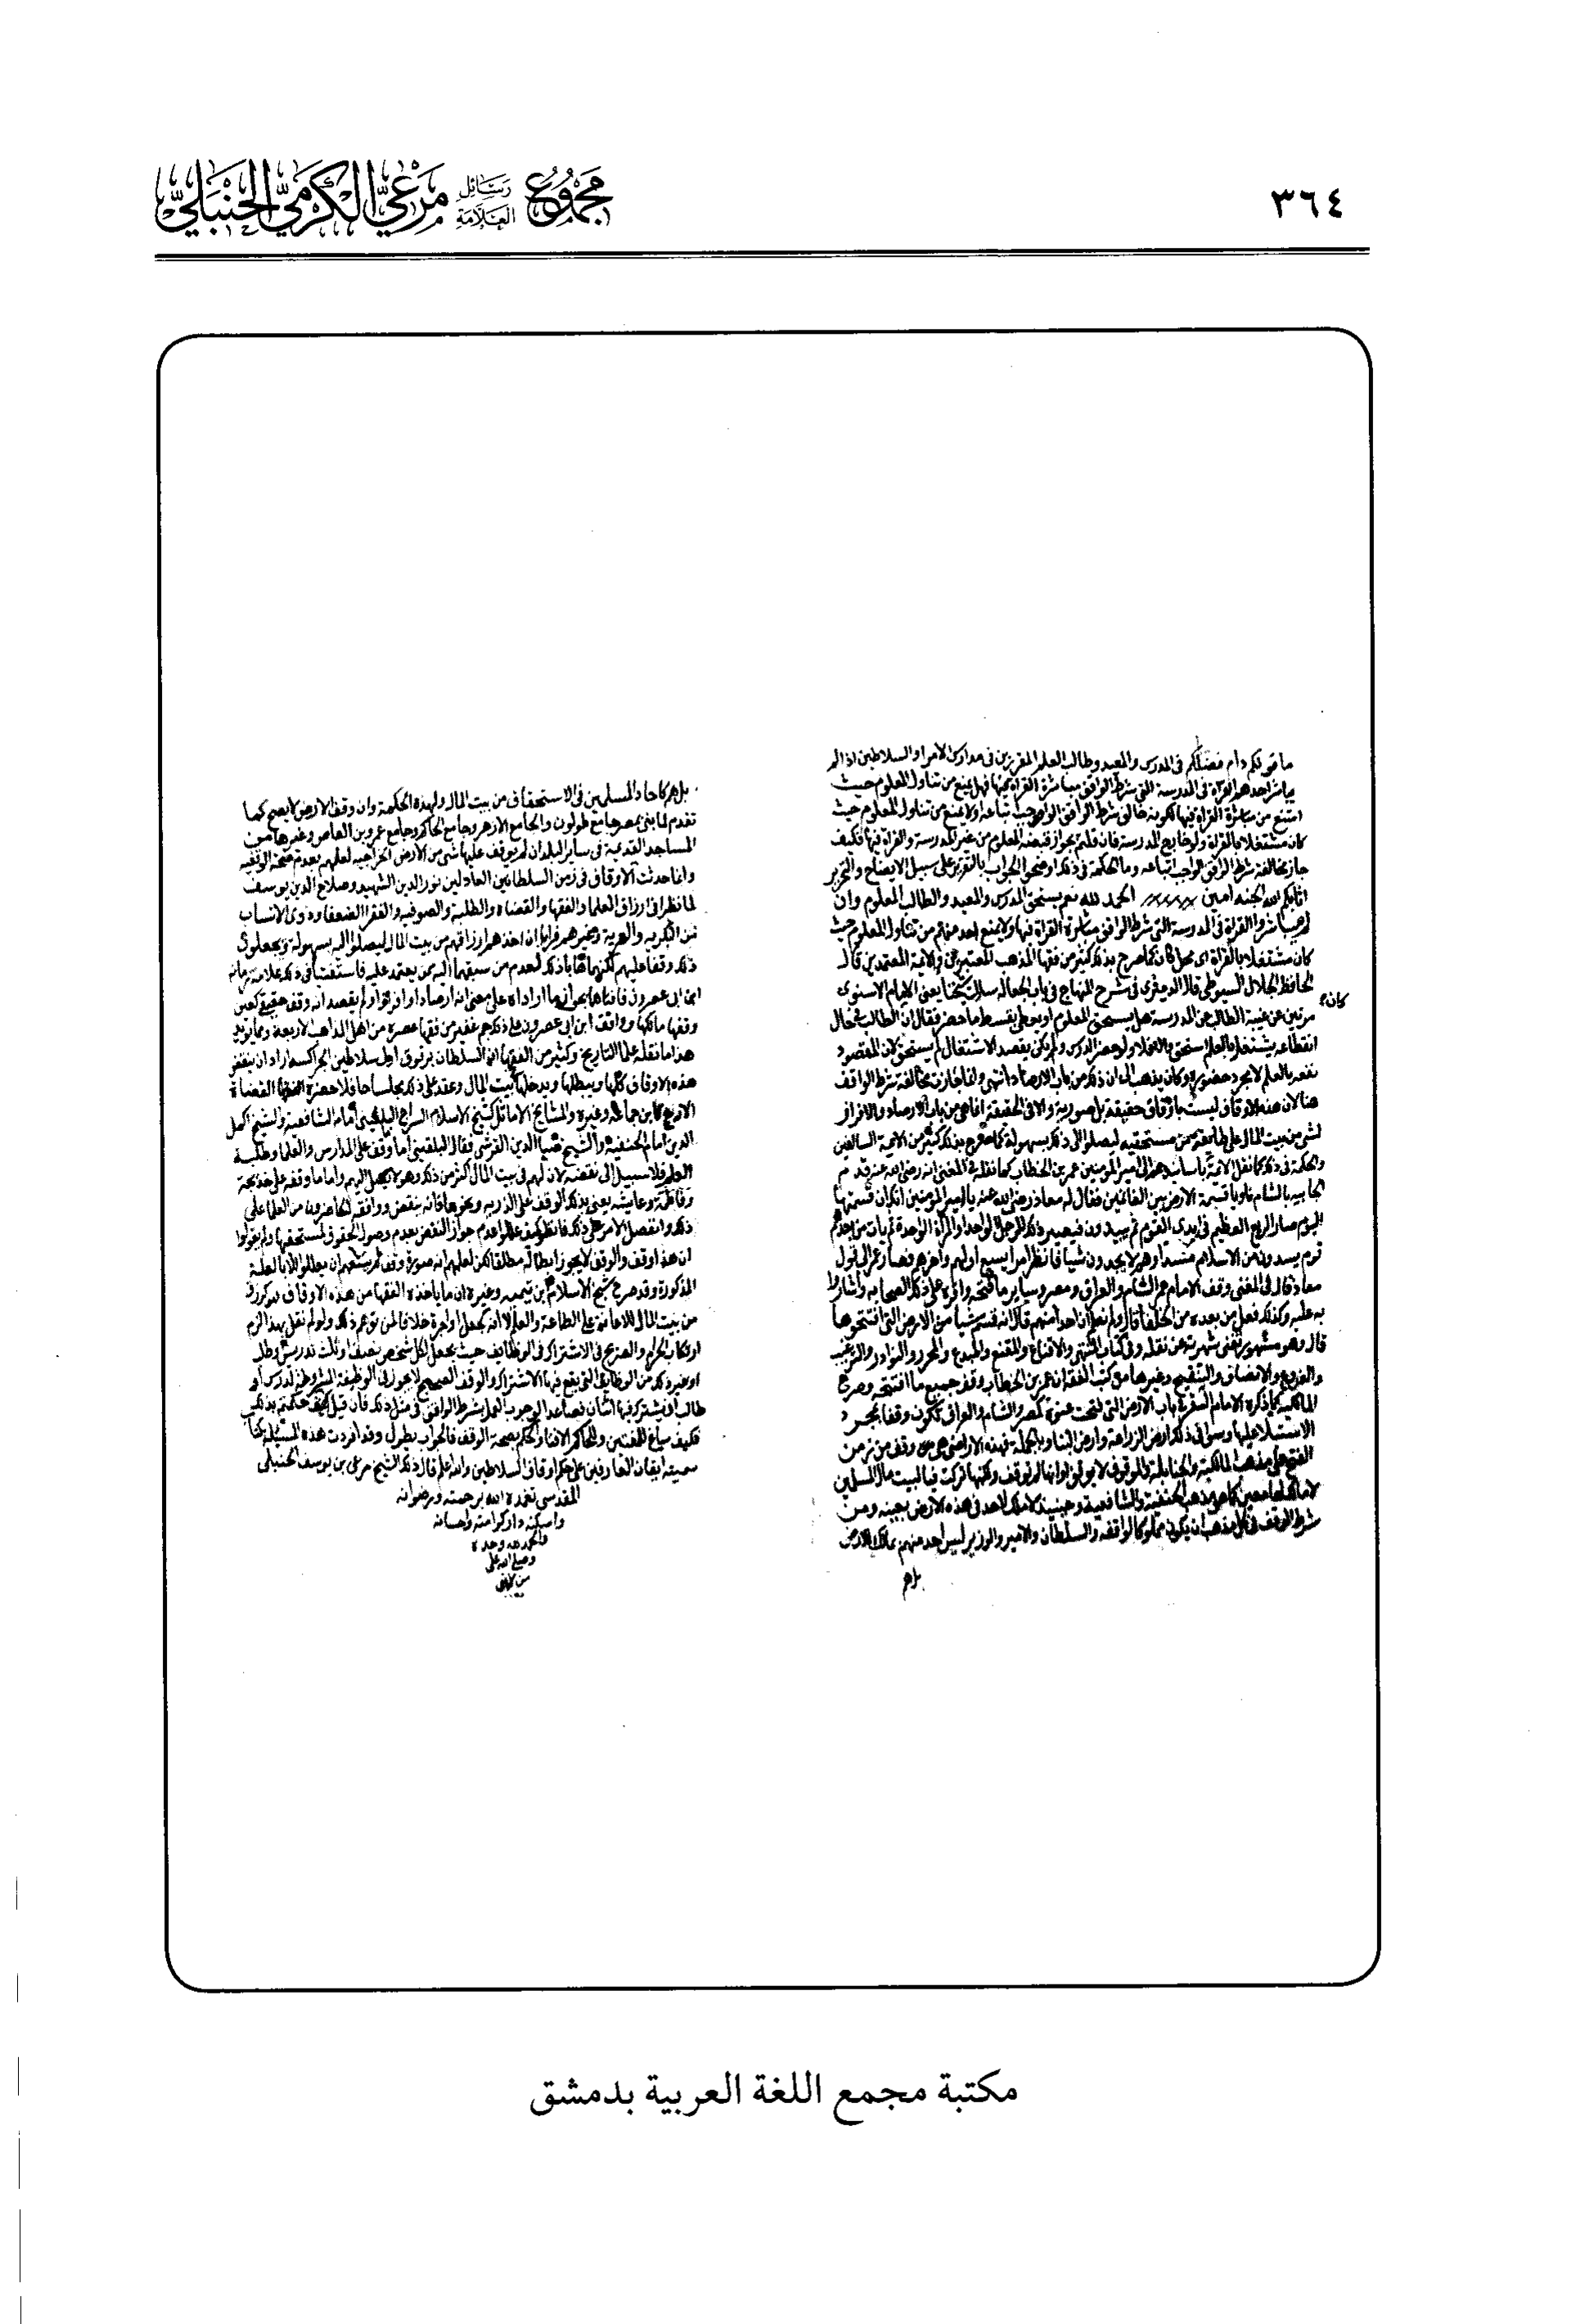 ٣٦٤
مجموع رسائل العلامة مرعي الكرمي الحنبلي
ما قولكم دام فضلكم في المدرس والمعيد وطالب العلم المقررين في مدارس الامرا والسلاطين اذا لم
يباشر احدهم القرآة في المدرسة التي شرط الواقف مباشرة القرآة فيها فهل يمنع من تناول المعلوم حيث
امتنع من مباشرة القراة فيها لكونه خالف شرط الواقف الواجب اتباعه اولا يمنع من تناول المعلوم حيث
كان مشتغلا بالقراة ولو خارج المدرسة فان قلتم بجواز قبضه المعلوم من غير المدرسة والقراة فيها فكيف
جاز مخالفة شرط الواقف الواجب اتباعه وما الحكمة في ذلك اوضحوا الجواب على سبيل الايضاح والتحرير
اثابكم الله الجنه امين الحمد لله نعم يستحق المدرس والمعيد والطالب المعلوم وان
لم يباشروا القراة في المدرسة التي شرط الواقف مباشرة القراة فيها ولا يمنع احد منهم من تناول المعلوم حيث
كان مشتغلا بالقراة اي محل كان كما صرح بذلك كثير من فقها المذهب المعتبرين والايمة المعتمدين قال
الحافظ الجلال السيوطي قال الدميري في شرح المنهاج في باب الجعالة سالت شيخنا يعني الامام الاسنوي
كان
مرتين عن غيبة الطالب عن المدرسة هل يستحق المعلوم او يعطى بقسط ما حضر فقال ان الطالب في حال
انقطاعه يشتغل بالعلم استحق والا فلا ولو حضر الدرس ولم يكن بقصد الاشتغال لم يستحق لان المقصود
نفعه بالعلم لا مجرد حضوره وكان يذهب الى ان ذلك من باب الارصاد انتهى وانما جازت مخالفة شرط الواقف
هنا لان هذه الاوقاف ليست باوقاف حقيقة بل صورية والا في الحقيقة انما هي من باب الارصاد والافراز
لشي من بيت المال على طايفة من مستحقيه ليصلوا الى ذلك بسهولة كما صرح بذلك كثير من الايمة السالفين
والحكمة في ذلك كما نقل الايمة باسانيدهم الى امير المومنين عمر بن الخطاب كما نقله في المغني انه رضي الله عنه قدم
الجابيه بالشام ناويا قسمة الارض بين الغانمين فقال له معاذ رضي الله عنه يا امير المومنين انك ان قسمتها
اليوم صار الريع العظيم في ايدي القوم ثم يبيدون فيصير ذلك للرجل الواحد او المراة الواحدة ثم يات من بعدهم
قوم يسدون من الاسلام مسدا وهم لا يجدون شيا فانظر امرا يسع اولهم واخرهم فصار عمر الى قول
معاذ قال في المغني وقف الامام عمر الشام والعراق ومصر وساير ما فتحه واقره على ذلك الصحابه واشاروا
به عليه وكذلك فعل من بعده من الخلفا قال ولم نعلم ان احدا منهم قال انه قسم شيا من الارض التي افتتحوها
قال وهو مشهور تغني شهرته عن نقله وفي كتاب المنتهى والاقناع والمقنع والمبدع والمحرر والنوادر
والفروع والانصاف والتنقيح وغيرها من كتب الفقه ان عمر بن الخطاب وقف جميع ما افتتحه وصرح
المالكية كما ذكره الامام في باب الارض التي فتحت عنوة كمصر والشام والعراق تكون وقفا بمجرد
الاستيلا عليها وسوا في ذلك ارض الزراعة وارض البنا وبالجملة فهذه الاراضي هي وقف من زمن
الفتح على مذهب المالكية والحنابلة والموقوف لا يوقف او انها لم توقف ولكنها تركت فيا لبيت مال المسلمين
لا مالك لها معين كما هو مذهب الحنفية والشافعية وحينيذ لا ملك لاحد في هذه الارض بعينه ومن
شرط الوقف في كل مذهب ان يكون مملوكا لواقفه والسلطان والامير والوزير ليس احد منهم بمالك للارض
بل هم
بل هم كاحاد المسلمين في الاستحقاق من بيت المال ولهذه الحكمة وان وقف الارض لا يصح كما
تقدم لما بني بمصر جامع طولون والجامع الازهر وجامع الحاكم وجامع عمرو بن العاص وغيرها من
المساجد القديمة في ساير البلدان لم يوقف عليها شي من الارض الخراجيه لعلمهم بعدم صحة الوقفيه
وانما حدثت الاوقاف في زمن السلطانين العادلين نور الدين الشهيد وصلاح الدين يوسف
لما نظرا في ارزاق العلما والفقها والقضاة والطلبة والصوفيه والفقرا الضعفا وذوي الانساب
من البكريه والعمرية وغيرهم فرايا ان اخذهم ارزاقهم من بيت المال ليصلوا اليه بسهولة ويجعلون
ذلك وقفا عليهم لكنهما هابا ذلك لعدم من سبقهما اليه ممن يعتمد عليه فاستفتيا في ذلك علامة زمانه
ابن ابي عصرون فافتاهما بجواز ما اراداه على معنى انه ارصاد وافراز ولم يقصد انه وقف حقيقي كمن
وقفها مالكها ووافق ابن ابي عصرون على ذلك جم غفير من فقها عصره من اهل المذاهب الاربعة ومما يويد
هذا ما نقله علما التاريخ وكثير من الفقها ان السلطان برقوق اول سلاطين الجراكسه اراد ان ينقض
هذه الاوقاف كلها ويبطلها ويدخلها بيت المال وعقد على ذلك مجلسا حافلا حضره القضاة
الاربع كابن جماعة وغيره والمشايخ الاماثل كشيخ الاسلام السراج البلقيني امام الشافعية والشيخ اكمل
الدين امام الحنفية والشيخ ضيا الدين القرمي فقال البلقيني اما ما وقف على المدارس والعلما وطلبة
العلم فلا سبيل الى نقضه لان لهم في بيت المال اكثر من ذلك وهو لا يصل اليهم واما ما وقف على خديجة
وفاطمة وعايشه يعني بذلك الوقف على الذريه ونحوها فانه ينقض ووافقه الحاضرون من العلما على
ذلك وانفصل الامر على ذلك فانظر كيف عللوا عدم جواز النقض بعدم وصول الحقوق لمستحقها ولم يقولوا
ان هذا وقف والوقف لا يجوز ابطاله مطلقا لكن لعلمهم انه صورة وقف لم يسعهم ان يعللوا الا بالعلة
المذكورة وقد صرح شيخ الاسلام ابن تيميه وغيره ان ما ياخذه الفقها من هذه الاوقاف هو كرزق
من بيت المال للاعانة على الطاعة والعلم لا انه كجعل او اجرة خلافا لمن توهم ذلك ولو لم نقل بهذا لزم
ارتكاب الحرام والصريح في الاشتراك في الوظايف حيث يجعل لكل شخص نصف او ثلث تدريس وطلب
او غير ذلك من الوظايف التي يقع فيها الاشتراك والوقف الصحيح لا يجوز في الوظيفة المشروطة لمدرس او
طالب ان يشترك فيها اثنان فصاعدا لوجوب العمل بشرط الواقف في مثل ذلك فان قيل كيف حكمتم بذلك
فكيف ساغ للمفتين وللحاكم الافتا والحكم بصحة الوقف فالجواب يطول وقد افردت هذه المسئلة بكتاب
سميته ايقاف العارفين على حكم اوقاف السلاطين والله اعلم قال ذلك الشيخ مرعي بن يوسف الحنبلي
المقدسي تغمده الله برحمته ورضوانه
واسكنه دار كرامته واحسانه
والحمد لله وحده
وصلى الله على
من لا نبي
مكتبة مجمع اللغة العربية بدمشق